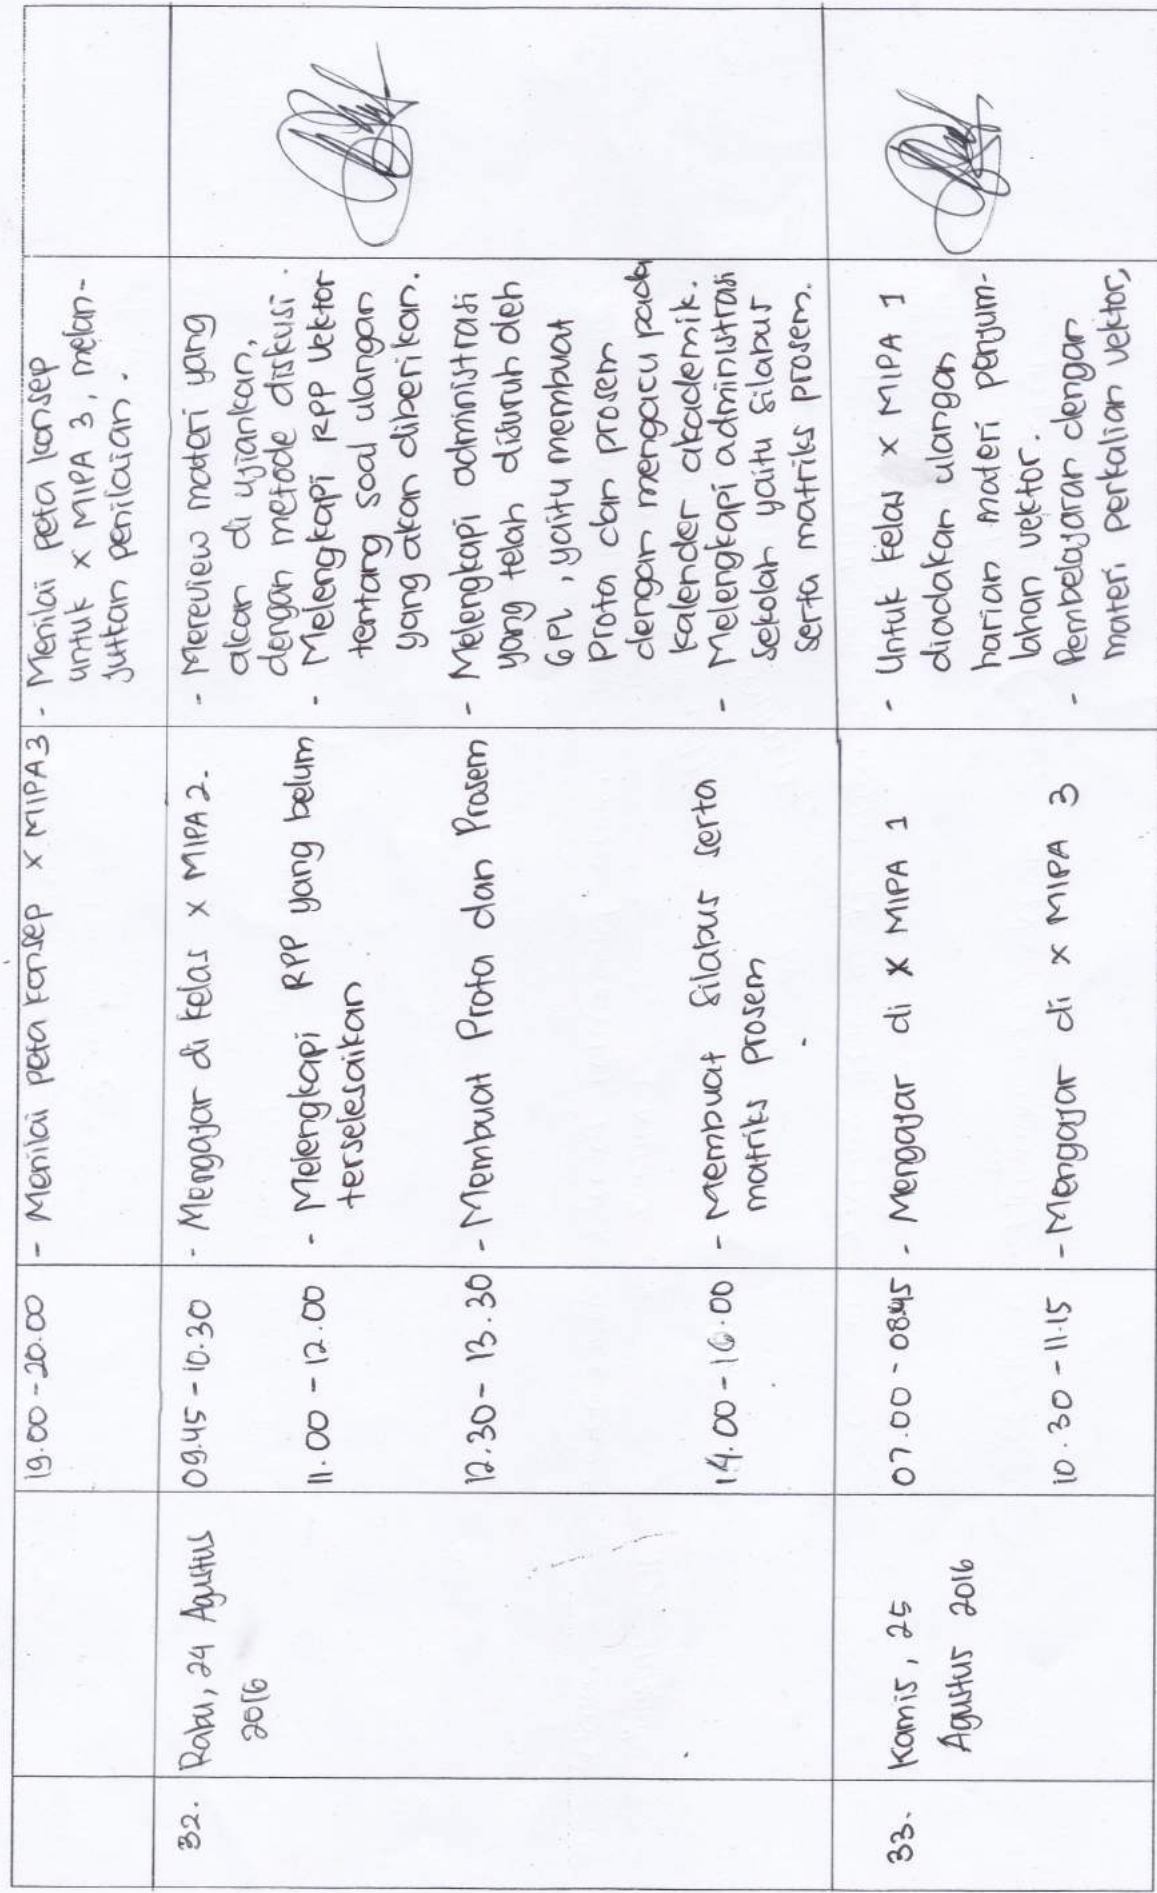 19.00 - 20.00
- Menilai peta konsep X MIPA 3
- Menilai peta konsep
untuk X MIPA 3, melan-
jutkan penilaian.
32.
Rabu, 24 Agustus
2016
09.45 - 10.30
- Mengajar di kelas X MIPA 2.
- Mereview materi yang
akan di ujiankan,
dengan metode diskusi.
11.00 - 12.00
- Melengkapi RPP yang belum
terselesaikan
- Melengkapi RPP vektor
tentang soal ulangan
yang akan diberikan.
12.30 - 13.30
- Membuat Prota dan Prosem
- Melengkapi administrasi
yang telah disuruh oleh
GPL, yaitu membuat
Prota dan prosem
dengan mengacu pada
kalender akademik.
14.00 - 16.00
- Membuat Silabus serta
matriks prosem
- Melengkapi administrasi
sekolah yaitu silabus
serta matriks prosem.
33.
Kamis, 25
Agustus 2016
07.00 - 08.45
- Mengajar di X MIPA 1
- Untuk kelas X MIPA 1
diadakan ulangan
harian materi penjum-
lahan vektor.
10.30 - 11.15
- Mengajar di X MIPA 3
- Pembelajaran dengan
materi perkalian vektor,